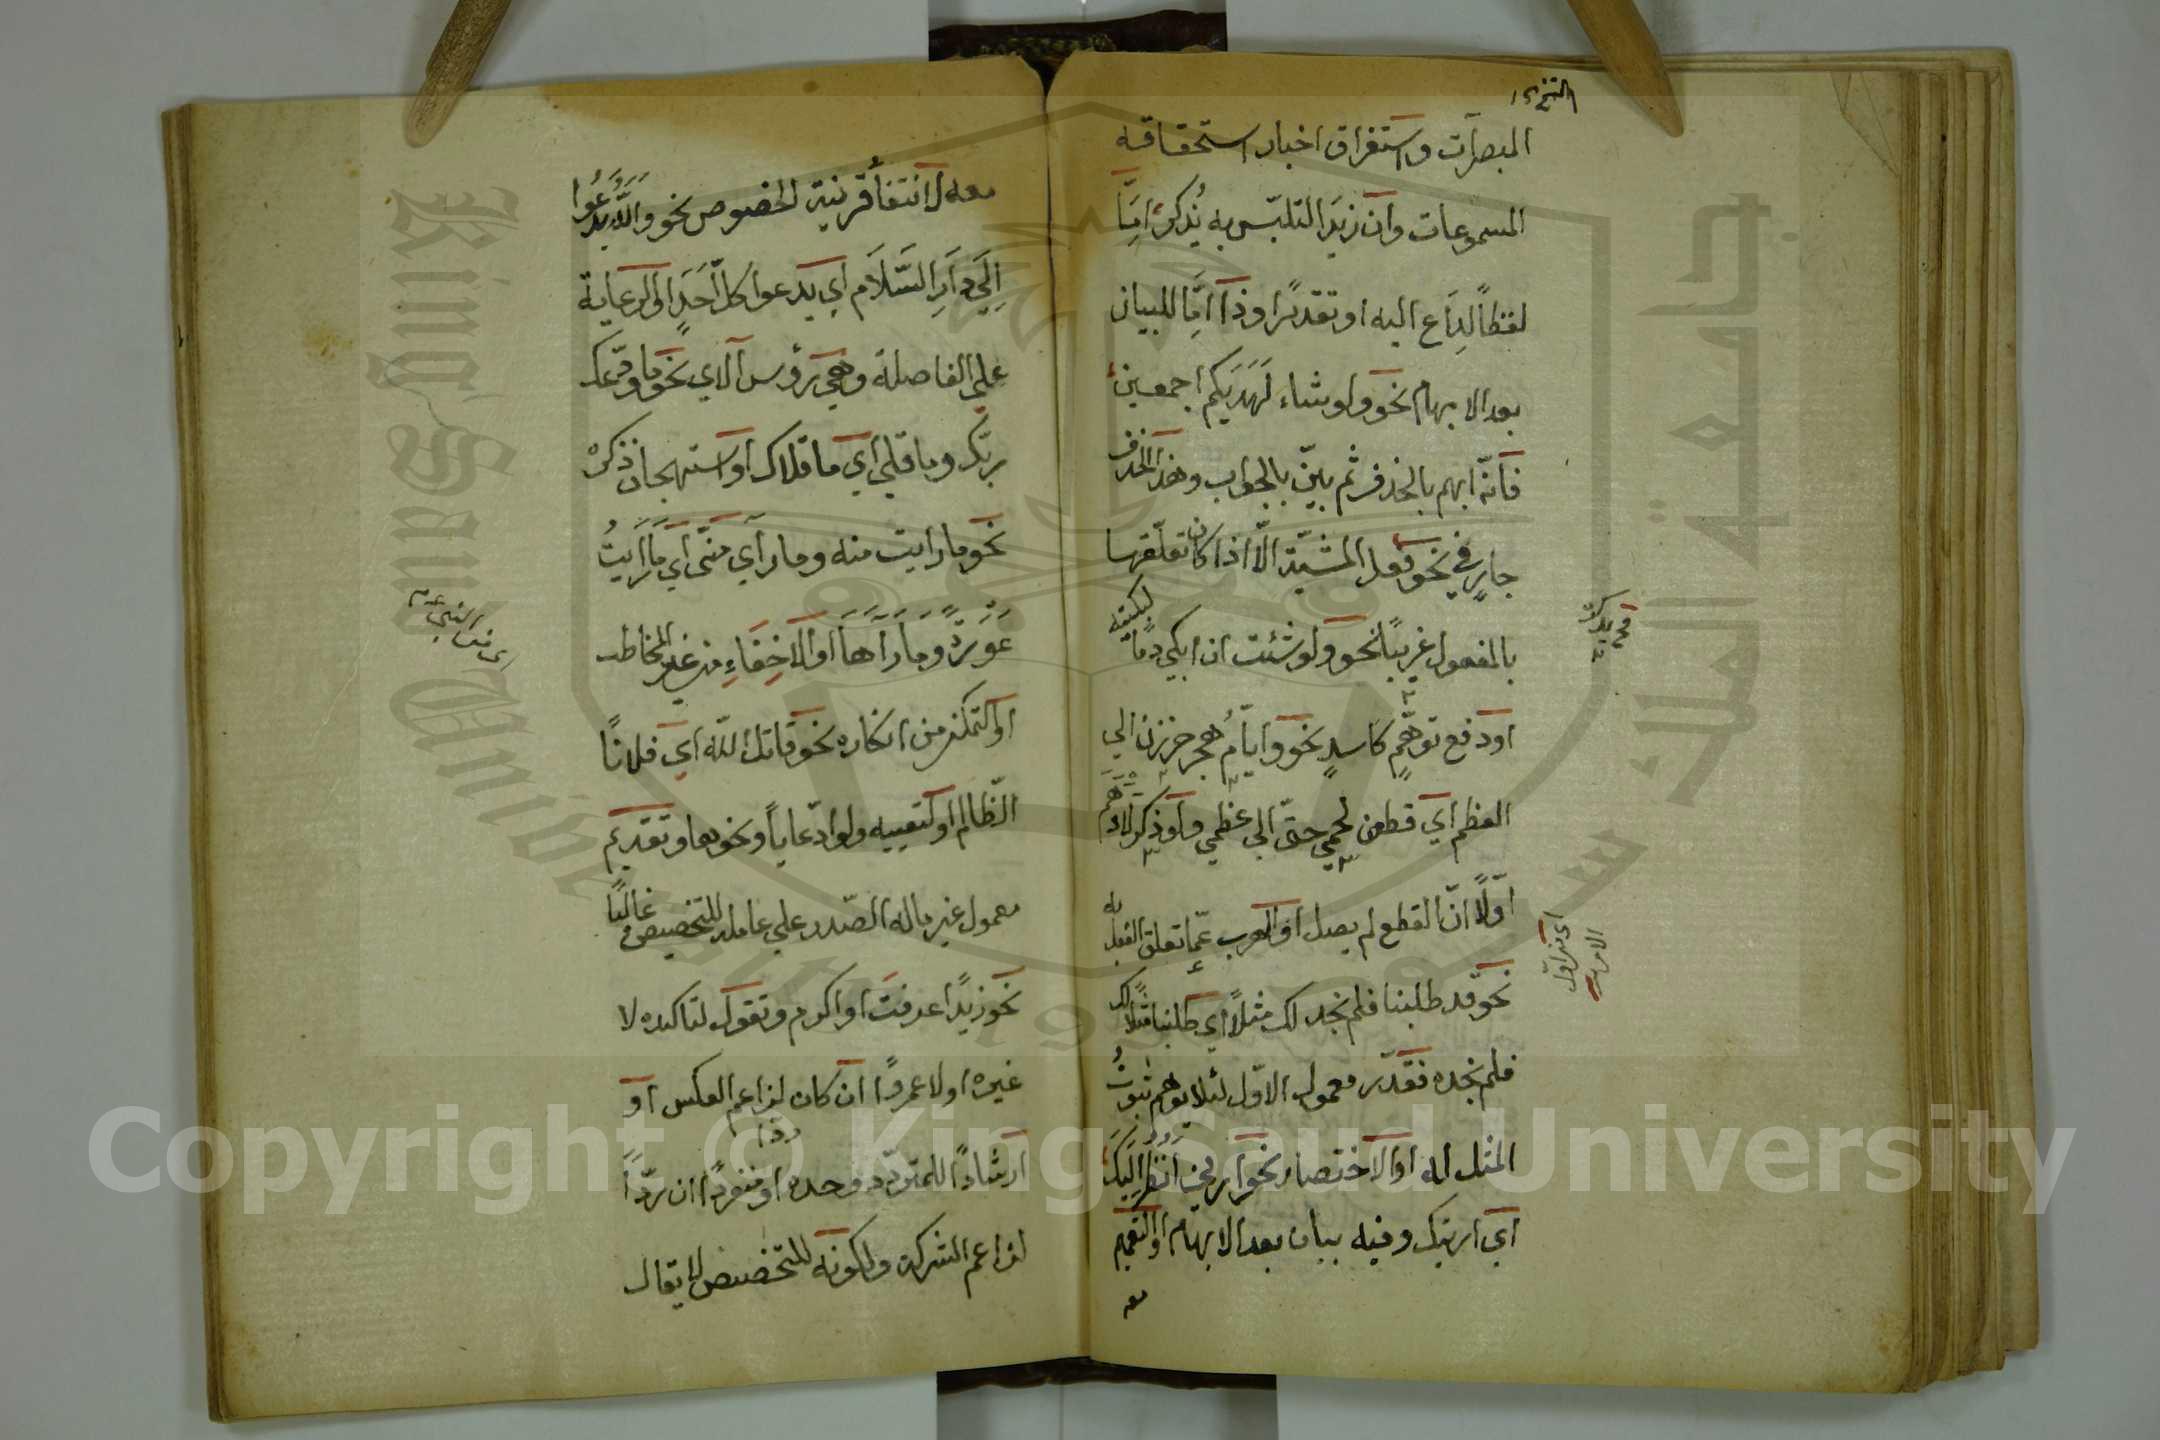 المبصرات واستغراق اخبار استحقاقه
المسموعات وان زيد التلبّس به يُذكر امّا
لفظاً لِدَاع اليه او تقديرًا وذا امّا للبيان
بعد الابهام نحو ولو شاء لَهَدَيكم اجمعين
فانّه ابهم بالحذف ثم بيّن بالجواب وهذا الحذف
جارٍ في نحو فعل المشيّة الّا اذا كان تعلّقها
بالمفعول غريبًا نحو ولو شئت ان ابكي دمًا لبكيته
او دفع توهّمٍ كاسدٍ نحو وايّامُ هجر حززن الي
العظم اي قطعن لحمي حتّي الي عظمي ولو ذكر لاوهم
اوّلاً انّ القطع لم يصل او الهرب عمّا تعلق الفعل به
نحو قد طلبنا فلم نجد لك مثلاً اي طلبنا مثلاً لك
فلم نجده فقدّر معمول الاوّل لئلا يوهم ثبوتُ
المثل له او الاختصار نحو ارني اَنْظُر اِلَيْكَ
اي ارنيك وفيه بيان بعد الابهام او التعميم
معه
معه لانتفأ قرينة الخصوص نحو وَاللّٰه يَدْعُوا
اِلَي دَارِ السَّلَام اي يدعوا كلّ اَحَدٍ او الرعاية
علي الفاصلة وهي رؤس الاي نحو ما ودّعك
ربّك وما قلي اي ما قلاك او استهجان ذكره
نحو ما رايت منه وما رآي منّي اي مَا رَاَيتُ
عَوْرَةً وَمَا رَآهَا او الاخِفَاءِ من غير المخاطب
او التمكن من انكاره نحو قاتل اللّه اي فلانًا
الظّالم او كتعيينه ولو ادّعاياً ونحوها وتقديم
معمول غير ماله الصّدر علي عامله للتخصيص غالبًا
نحو زيدًا عرفت او اكرم وتقول لتاكيده لا
غيره او لا عمروًا ان كان لزاعم العكس او
ارشادًا للمتردّد وحده او منفردًا ان ردًّا
لزاعم الشركة ولكونه للتخصيص لا يقال